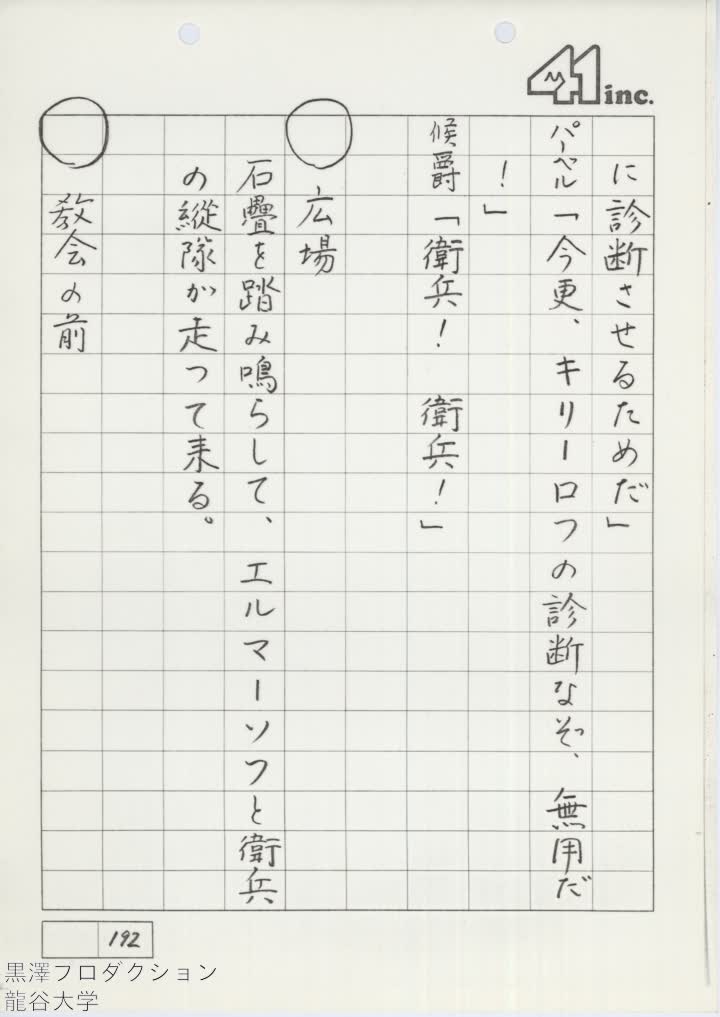 41 inc.
に診断させるためだ」
パーベル「今更、キリーロフの診断なぞ、無用だ
！」
候爵「衛兵！　衛兵！」
広場
石疊を踏み鳴らして、エルマーソフと衛兵
の縦隊が走って来る。
教会の前
192
黒澤プロダクション
龍谷大学